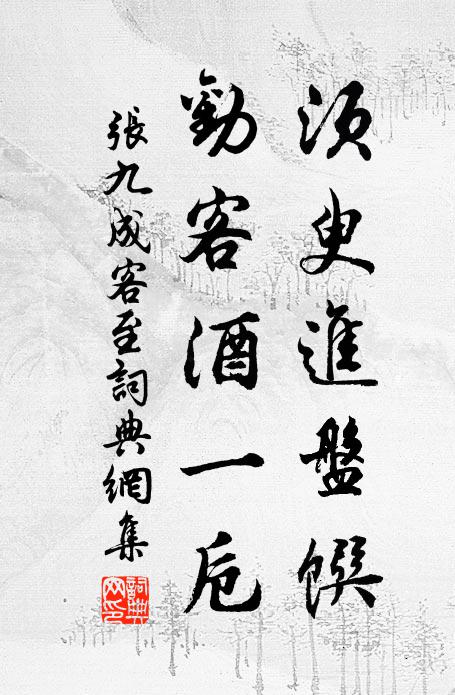 須臾進盤饌
勸客酒一卮
張九成客至詞典網集
詞典网印